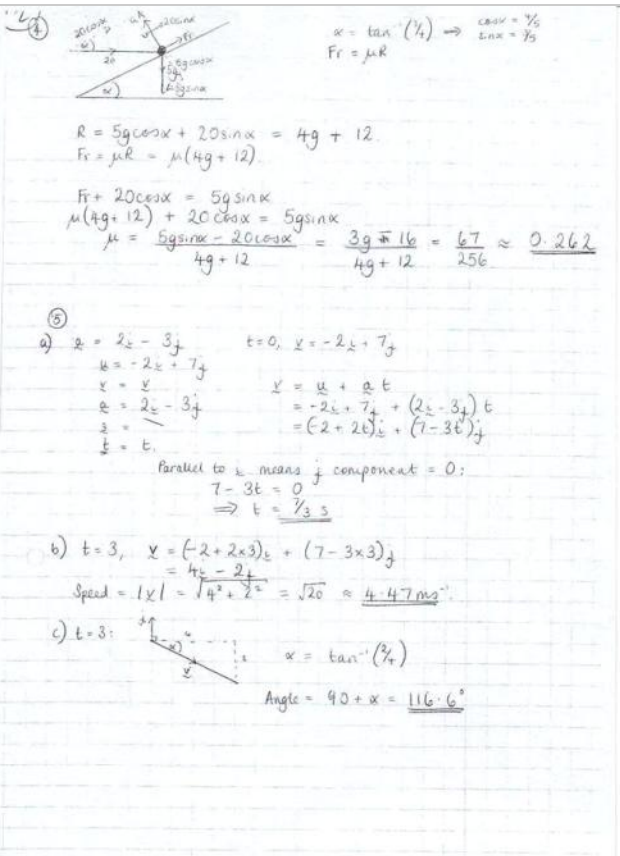 ④
20cosα
20sinα
Fr
20
5gcosα
5g
5gsinα
α
α = tan⁻¹(3/4) ⟹ cosα = 4/5
sinα = 3/5
Fr = μR
R = 5gcosα + 20sinα = 4g + 12.
Fr = μR = μ(4g + 12).
Fr + 20cosα = 5gsinα
μ(4g + 12) + 20cosα = 5gsinα
μ = (5gsinα - 20cosα)/(4g + 12) = (3g - 16)/(4g + 12) = 67/256 ≈ 0.262
⑤
a) a = 2i - 3j t=0, v = -2i + 7j
u = -2i + 7j
v = v v = u + at
a = 2i - 3j = -2i + 7j + (2i - 3j)t
s = — = (-2 + 2t)i + (7 - 3t)j
t = t.
Parallel to i means j component = 0:
7 - 3t = 0
⟹ t = 7/3 s
b) t = 3, v = (-2 + 2×3)i + (7 - 3×3)j
= 4i - 2j
Speed = |v| = √(4² + 2²) = √20 ≈ 4.47ms⁻¹.
c) t = 3:
j
4
α
2
v
α = tan⁻¹(2/4)
Angle = 90 + α = 116.6°